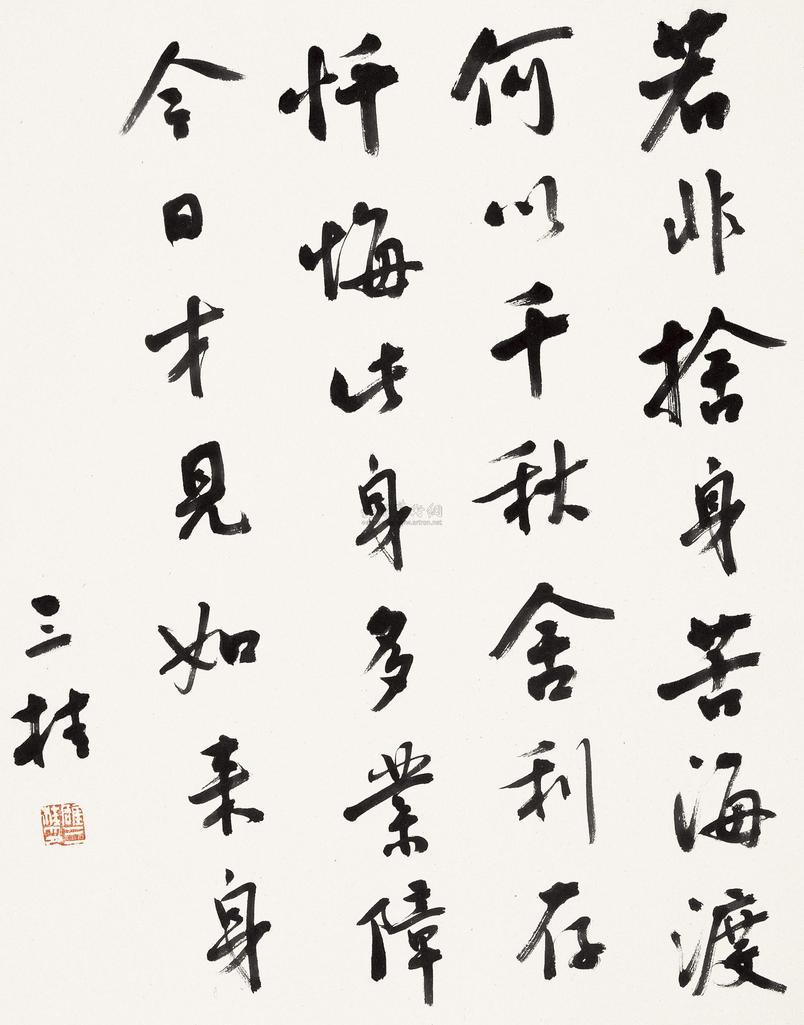 若非捨身苦海渡
何以千秋舍利存
忏悔此身多業障
今日才見如来身
三桂